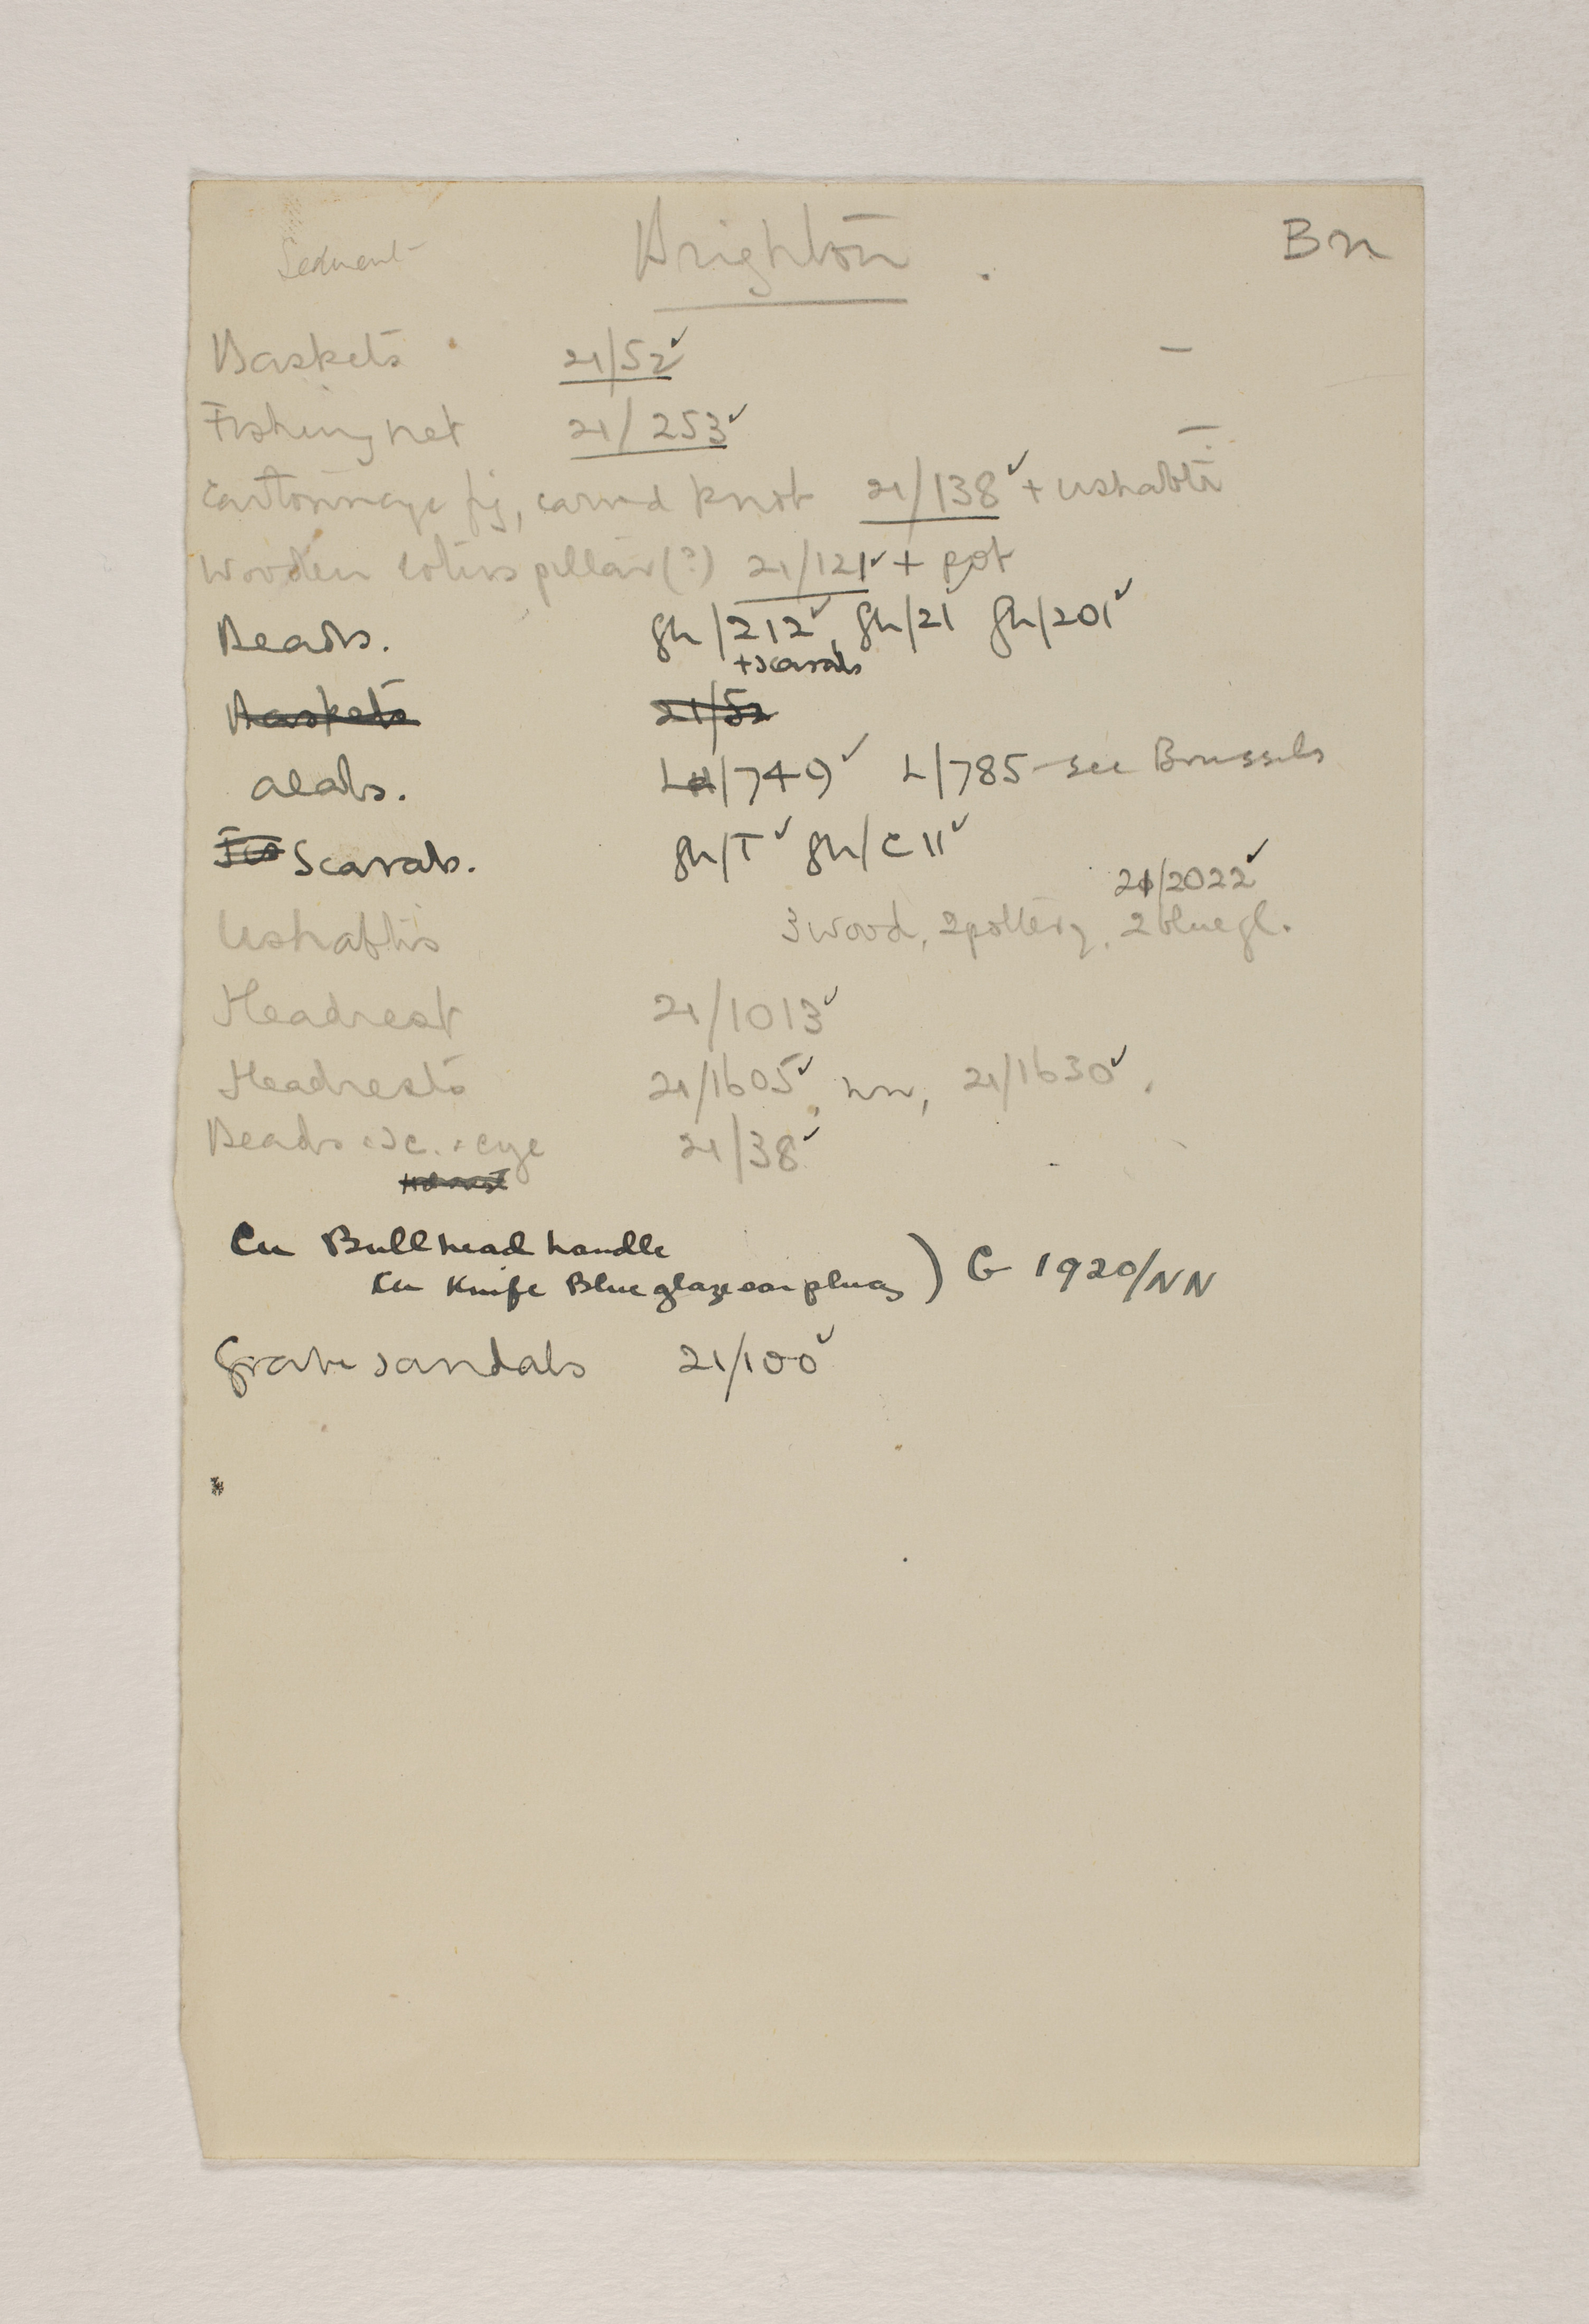 Sedment Brighton . Bn
Baskets 21/52 ✓ —
Fishing net 21/253 ✓ —
Cartonnage fig, carved knot 21/138 ✓ + ushabti
Wooden lotus pillar (?) 21/121 ✓ + pot
Beads. gh/212 ✓, gh/21 gh/201 ✓
+ scarabs
Baskets 21/52
alabs. L/749 ✓ L/785 - see Brussels
Scarabs. gh/T ✓ gh/C11 ✓
21/2022 ✓
Ushabtis 3 wood, 2 pottery, 2 blue gl.
Headrest 21/1013 ✓
Headrests 21/1605 ✓, nn, 21/1630 ✓.
Beads + sc. + eye 21/38 ✓
Hd rest
Cu Bullhead handle
Cu Knife Blue glaze ear plug ) G 1920/NN
Grave sandals 21/100 ✓